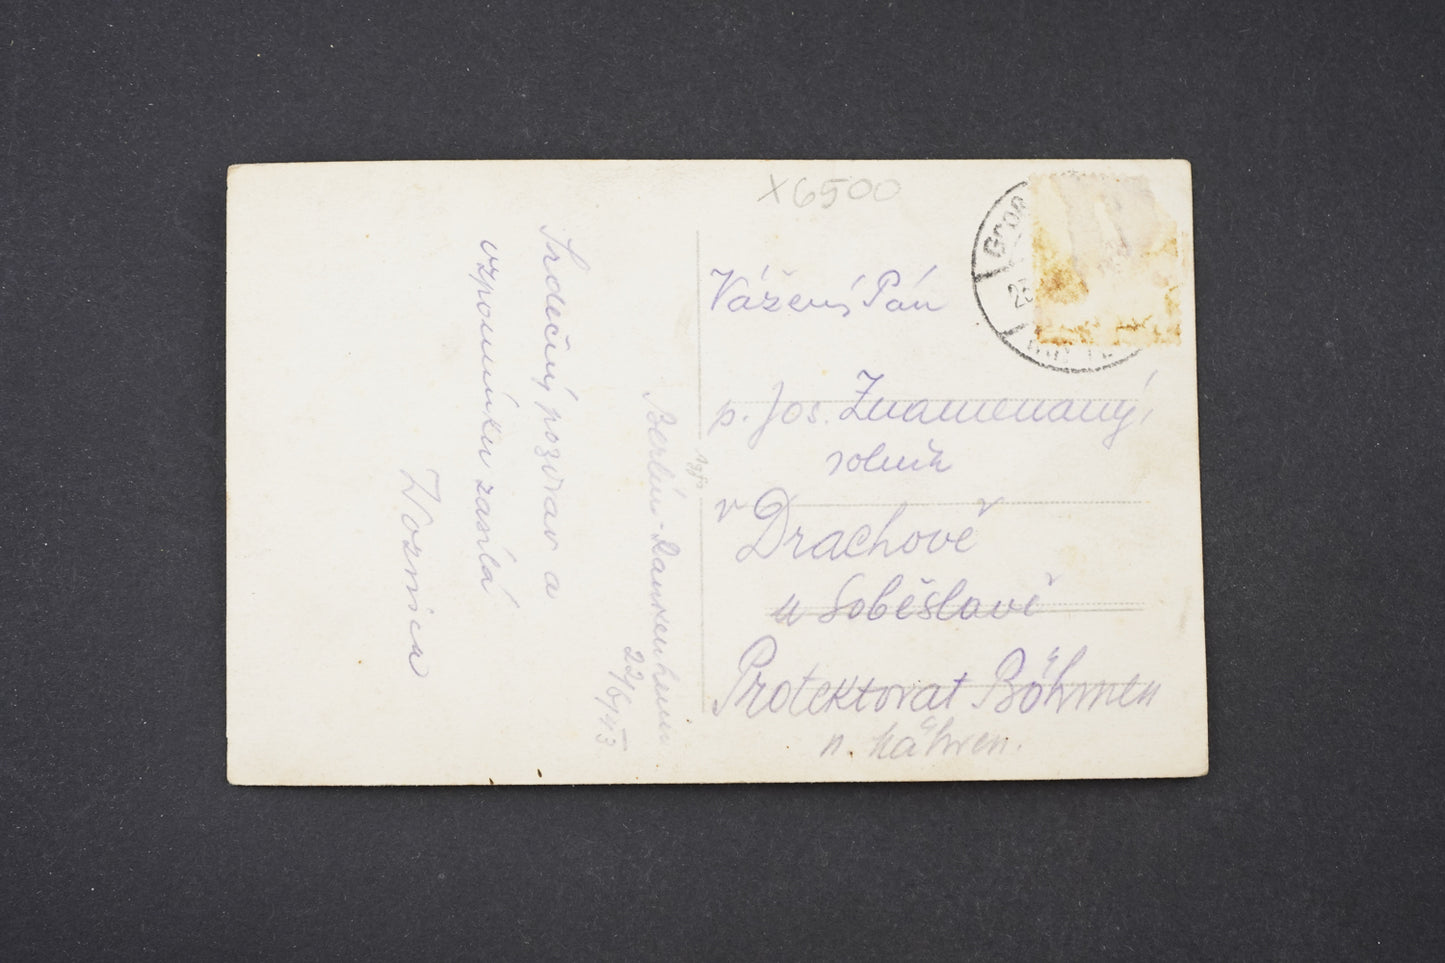 x6500
Srdečný pozdrav a
vzpomínku zasílá
Woznica
Berlin-Blankenheim
22/6/43
Agfa
Vážený Pán
p. Jos. Znamenaný,
rolník
v Drachově
u Soběslavě
Protektorat Böhmen
u. Mähren.
25